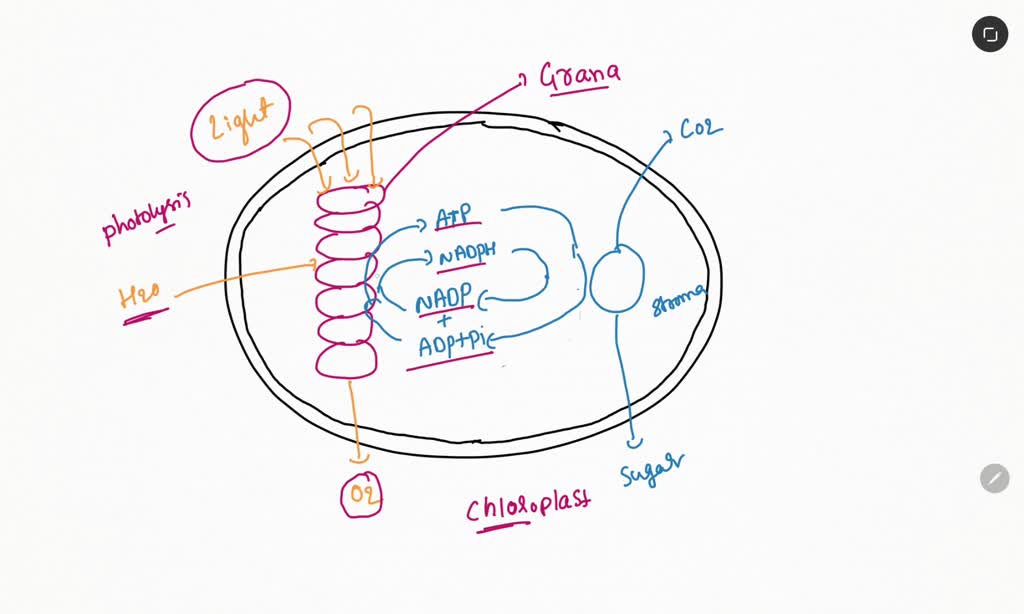 Grana
Light
CO2
photolysis
ATP
NADPH
H2O
NADP
+
stroma
ADP+Pi
Sugar
O2
Chloroplast